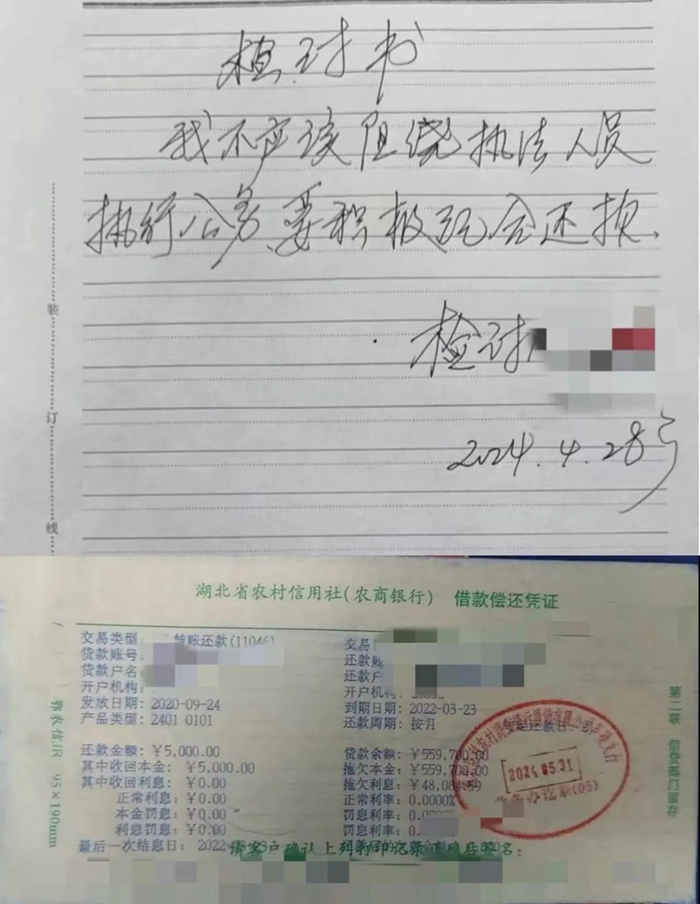 检讨书
我不应该阻绕执法人员
执行公务要积极配合还损
检讨
2024.4.28号
装
订
线
湖北省农村信用社(农商银行) 借款偿还凭证
交易类型: 转账还款(11046)
贷款账号:
贷款户名
开户机构:
发放日期: 2020-09-24
产品类型: 2401 0101
交易
还款账
还款户
开户机构:
到期日期: 2022-03-23
还款周期: 按月
还款金额: ¥5,000.00
其中收回本金: ¥5,000.00
其中收回利息: ¥0.00
正常利息: ¥0.00
本金罚息: ¥0.00
利息罚息: ¥0.00
最后一次结息日: 2022
贷款余额: ¥559,700.00
拖欠本金: ¥559,700
拖欠利息: ¥48,084.59
正常利率: 0.0000%
罚息利率: 0.
罚息利率: 0.
请客户确认上列打印记录正确后签名:
2024.05.31
鄂农信JR 95×190mm
第二联 信贷部门留存